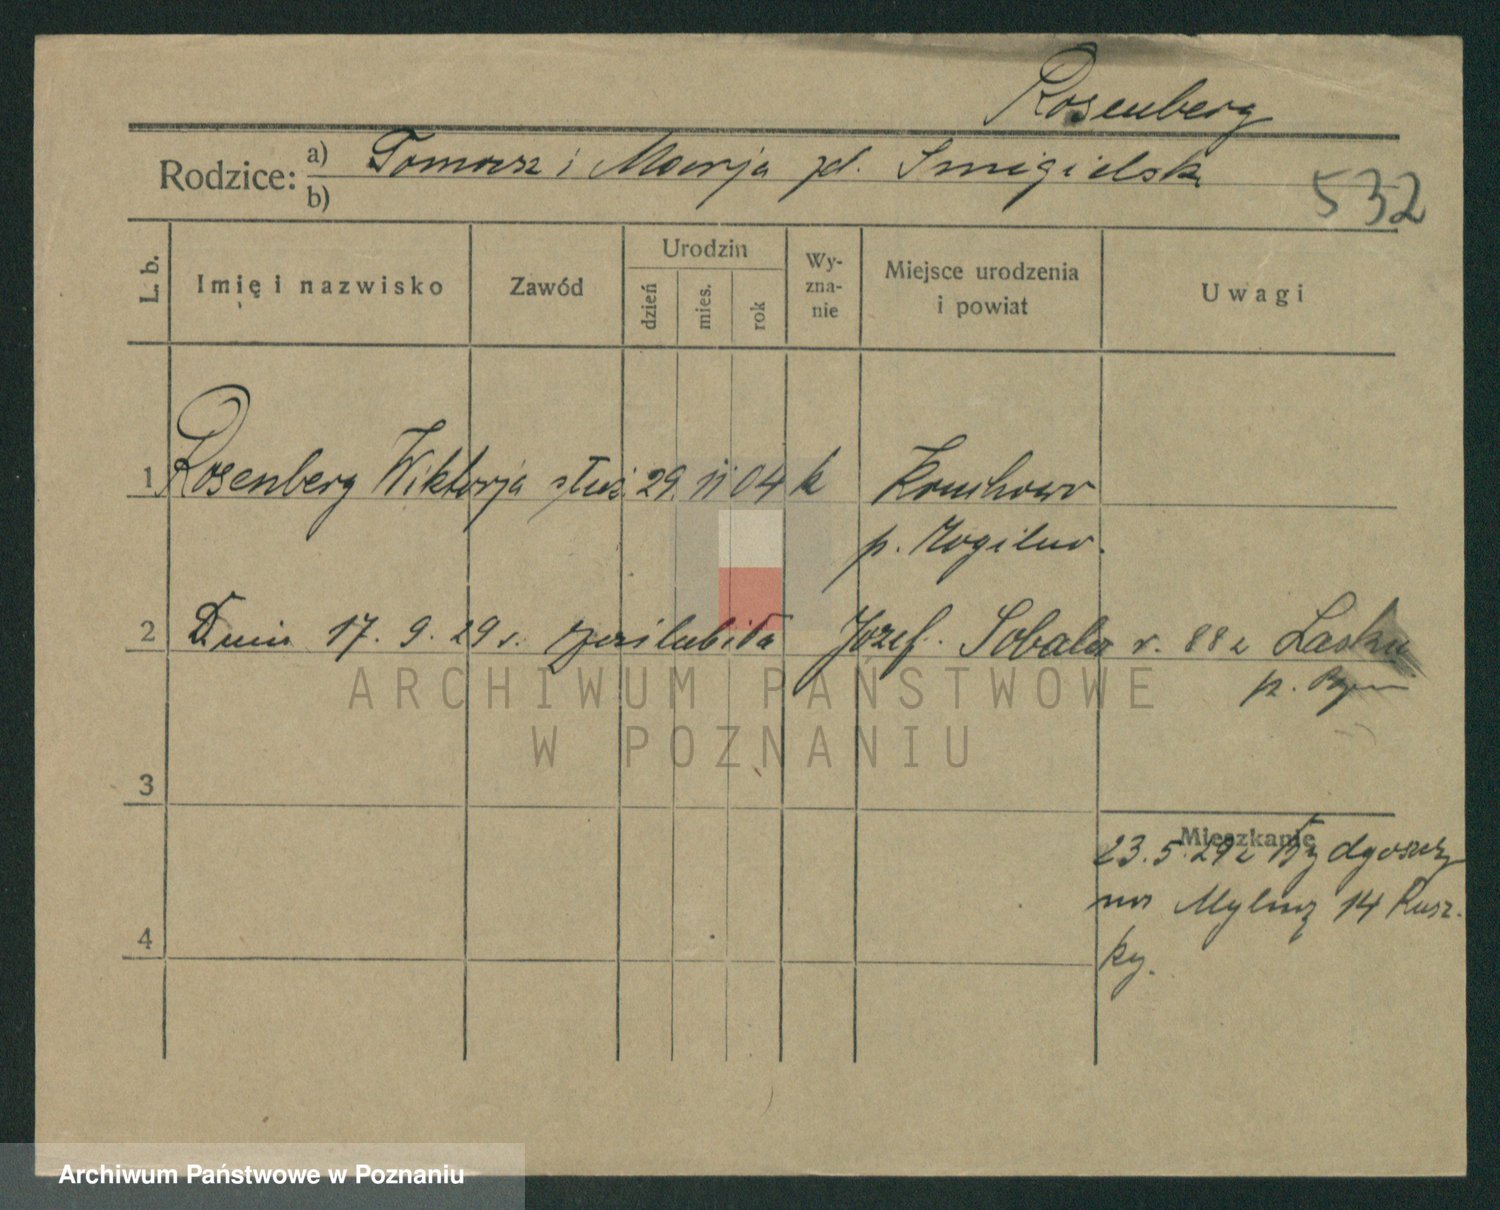 Rosenberg
Rodzice: a) Tomasz i Marja zd. Smigielsk
b)
532
L. b.
Imię i nazwisko
Zawód
Urodzin
dzień
mies.
rok
Wy-
zna-
nie
Miejsce urodzenia
i powiat
Uwagi
1 Rosenberg Wiktorja służ. 29. 11 04 k Kruchowo
p. Mogilno.
2 Dnia 17. 9. 29 r. poślubiła Józef Sobala r. 88 z Lasku
p.
ARCHIWUM PAŃSTWOWE
W POZNANIU
3
Mieszkanie
23. 5. 29 z Bydgoszczy
na Mylną 14 Rusz-
ky.
4
Archiwum Państwowe w Poznaniu